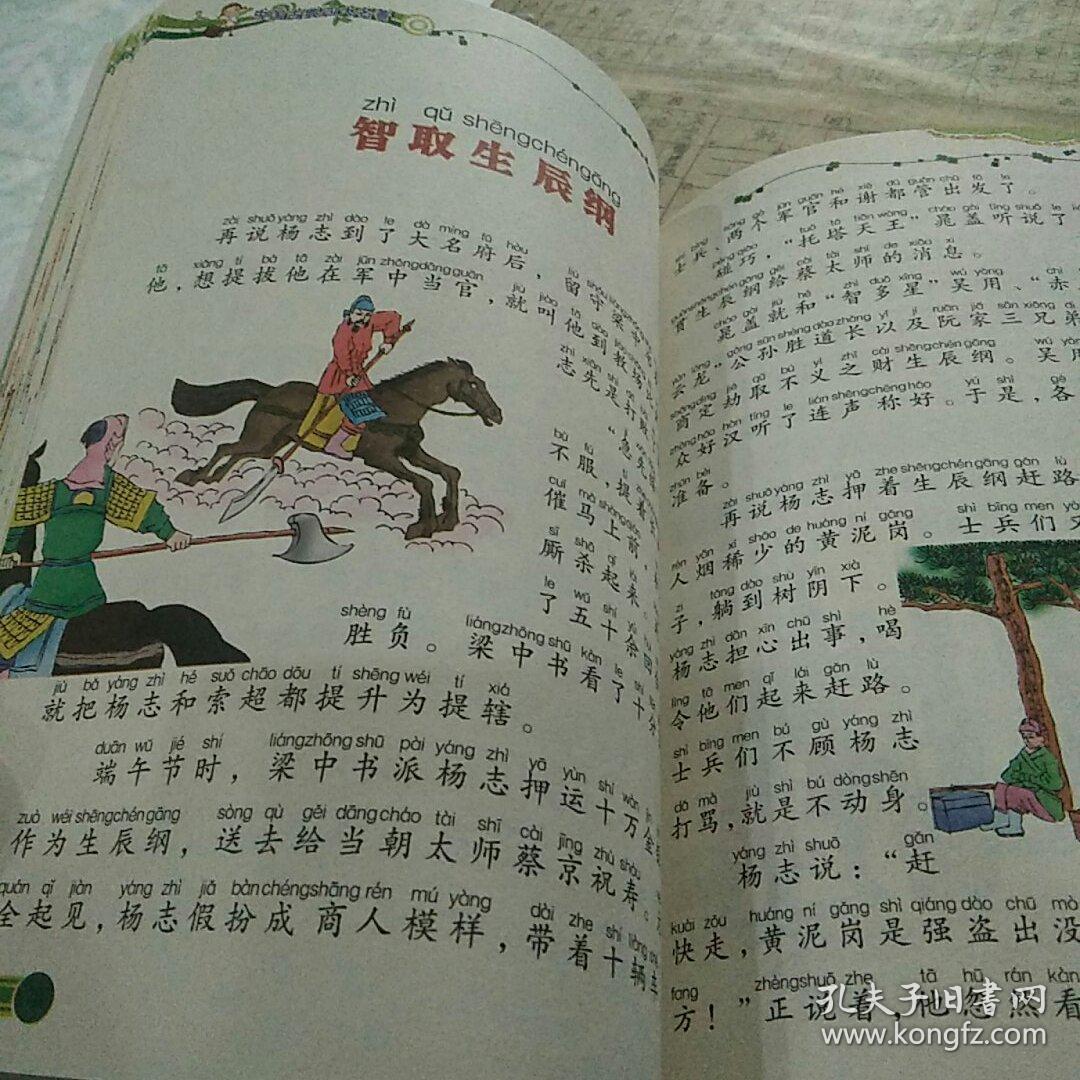 zhì qǔ shēngchéngāng
智取生辰纲
zài shuō yáng zhì dào le dà míng fǔ hòu
再说杨志到了大名府后，留守梁中
tā xiǎng tí bá tā zài jūn zhōng dāng guān jiù jiào tā dào
他，想提拔他在军中当官，就叫他到教场
志先是打败
bù fú
不服，提着
cuī mǎ shàng qián
催马上前，
sī shā qǐ lái
厮杀起来
le wǔ shí
了五十余
shèng fù liángzhōng shū kàn le shí
胜负。梁中书看了十分
jiù bǎ yáng zhì hé suǒ chāo dōu tí shēng wéi tí xiá
就把杨志和索超都提升为提辖。
duān wǔ jié shí liángzhōng shū pài yáng zhì yā yùn shí wàn
端午节时，梁中书派杨志押运十万金
zuò wéi shēngchéngāng sòng qù gěi dāngcháo tài shī cài jīng zhù shòu
作为生辰纲，送去给当朝太师蔡京祝寿。
quán qǐ jiàn yáng zhì jiǎ bàn chéngshāng rén mú yàng dài zhe shí liàng
全起见，杨志假扮成商人模样，带着十辆车
士兵、两个军官和谢都管出发了。
碰巧，“托塔天王”晁盖听说了
贺生辰纲给蔡太师的消息。
晁盖就和“智多星”吴用、“赤
云龙”公孙胜道长以及阮家三兄弟
商定劫取不义之财生辰纲。吴用
众好汉听了连声称好。于是，各
zhǔn bèi
准备。
zài shuō yáng zhì yā zhe shēngchén gāng gǎn lù
再说杨志押着生辰纲赶路
rén yān xī shǎo de huáng ní gāng shì bīng men yòu
人烟稀少的黄泥岗。士兵们又
zi tǎng dào shù yīn xià
子，躺到树阴下。
yáng zhì dān xīn chū shì hè
杨志担心出事，喝
lìng tā men qǐ lái gǎn lù
令他们起来赶路。
shì bīng men bú gù yáng zhì
士兵们不顾杨志
dǎ mà jiù shì bú dòngshēn
打骂，就是不动身。
yáng zhì shuō gǎn
杨志说：“赶
kuài zǒu huáng ní gāng shì qiáng dào chū mò
快走，黄泥岗是强盗出没
fang zhèngshuō zhe tā hū rán kàn
方！”正说着，他忽然看
孔夫子旧书网
www.kongfz.com